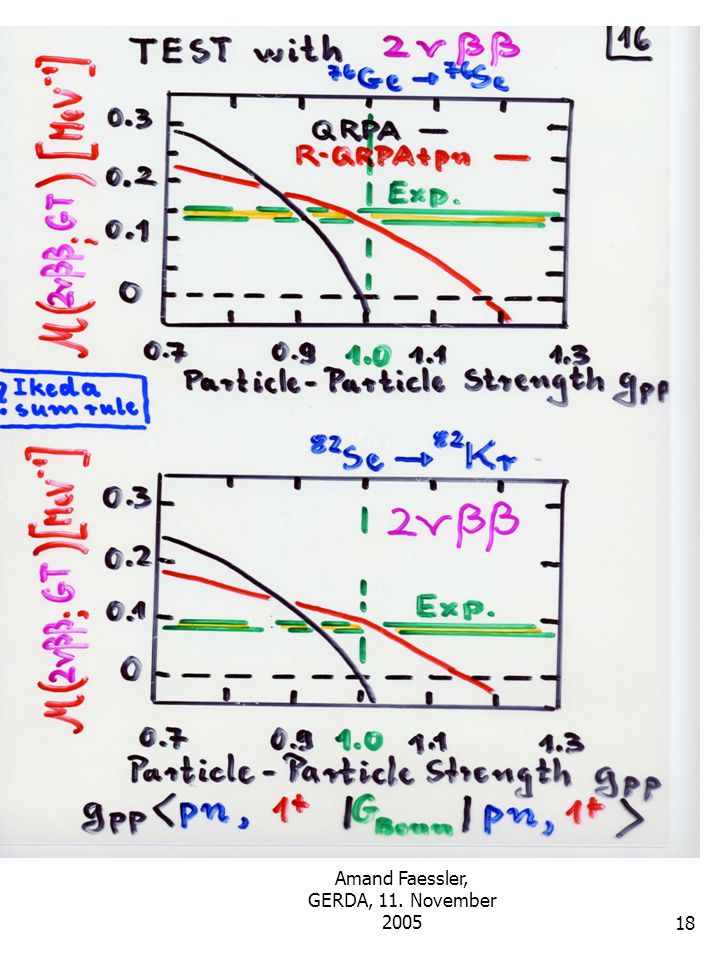 TEST with 2νββ
16
⁷⁶Ge → ⁷⁶Se
M(2νββ; GT) [MeV⁻¹]
0.3
0.2
0.1
0
QRPA —
R-QRPA+pn —
Exp.
0.7 0.9 1.0 1.1 1.3
Particle-Particle Strength gpp
? Ikeda
sum rule
⁸²Se → ⁸²Kr
M(2νββ; GT) [MeV⁻¹]
0.3
0.2
0.1
0
2νββ
Exp.
0.7 0.9 1.0 1.1 1.3
Particle-Particle Strength gpp
gpp <pn, 1⁺ |G_Bonn| pn, 1⁺>
Amand Faessler,
GERDA, 11. November
2005
18